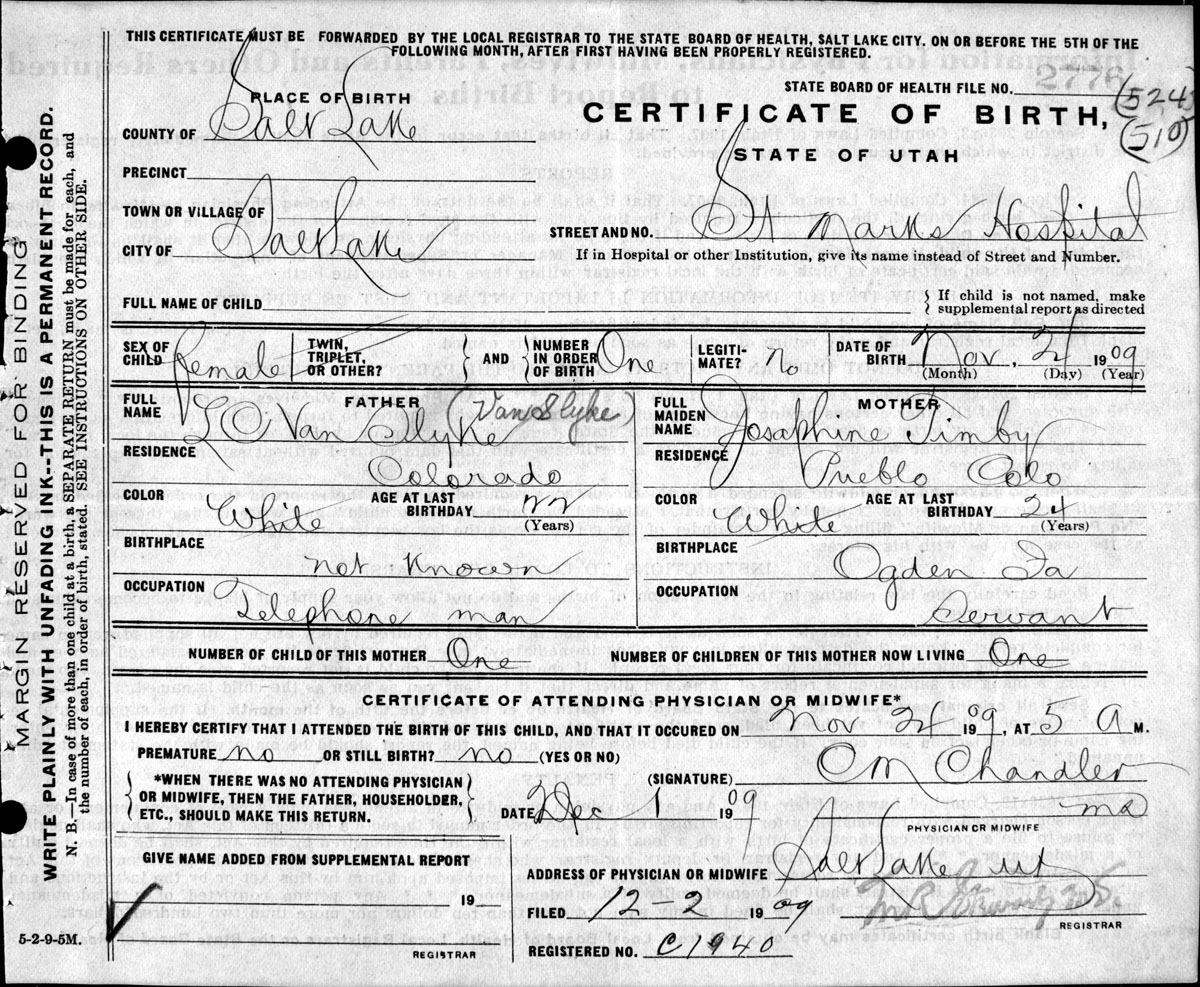 THIS CERTIFICATE MUST BE FORWARDED BY THE LOCAL REGISTRAR TO THE STATE BOARD OF HEALTH, SALT LAKE CITY, ON OR BEFORE THE 5TH OF THE
FOLLOWING MONTH, AFTER FIRST HAVING BEEN PROPERLY REGISTERED.
STATE BOARD OF HEALTH FILE NO. 2776
(524)
(510)
PLACE OF BIRTH
CERTIFICATE OF BIRTH,
STATE OF UTAH
COUNTY OF Salt Lake
PRECINCT
TOWN OR VILLAGE OF
CITY OF Salt Lake
STREET AND NO. St Marks Hospital
If in Hospital or other Institution, give its name instead of Street and Number.
FULL NAME OF CHILD
If child is not named, make
supplemental report as directed
SEX OF CHILD Female
TWIN, TRIPLET, OR OTHER?
AND
NUMBER IN ORDER OF BIRTH One
LEGITIMATE? no
DATE OF BIRTH Nov 24 1909
(Month) (Day) (Year)
FATHER
FULL NAME L O Van Slyke
Van Slyke
RESIDENCE
Colorado
COLOR White
AGE AT LAST BIRTHDAY 22
(Years)
BIRTHPLACE
not Known
OCCUPATION
Telephone man
MOTHER
FULL MAIDEN NAME Josaphine Timby
RESIDENCE
Pueblo Colo
COLOR White
AGE AT LAST BIRTHDAY 24
(Years)
BIRTHPLACE
Ogden Ia
OCCUPATION
Servant
NUMBER OF CHILD OF THIS MOTHER One
NUMBER OF CHILDREN OF THIS MOTHER NOW LIVING One
CERTIFICATE OF ATTENDING PHYSICIAN OR MIDWIFE*
I HEREBY CERTIFY THAT I ATTENDED THE BIRTH OF THIS CHILD, AND THAT IT OCCURED ON Nov 24 1909, AT 5 A M.
PREMATURE no OR STILL BIRTH? no (YES OR NO)
*WHEN THERE WAS NO ATTENDING PHYSICIAN
OR MIDWIFE, THEN THE FATHER, HOUSEHOLDER,
ETC., SHOULD MAKE THIS RETURN.
(SIGNATURE) O M Chandler
DATE Dec 1 1909
md
PHYSICIAN OR MIDWIFE
GIVE NAME ADDED FROM SUPPLEMENTAL REPORT
19
REGISTRAR
5-2-9-5M.
ADDRESS OF PHYSICIAN OR MIDWIFE Salt Lake ut
FILED 12-2 1909
REGISTRAR
REGISTERED NO. C1940
MARGIN RESERVED FOR BINDING
WRITE PLAINLY WITH UNFADING INK--THIS IS A PERMANENT RECORD.
N. B.—In case of more than one child at a birth, a SEPARATE RETURN must be made for each, and
the number of each, in order of birth, stated. SEE INSTRUCTIONS ON OTHER SIDE.